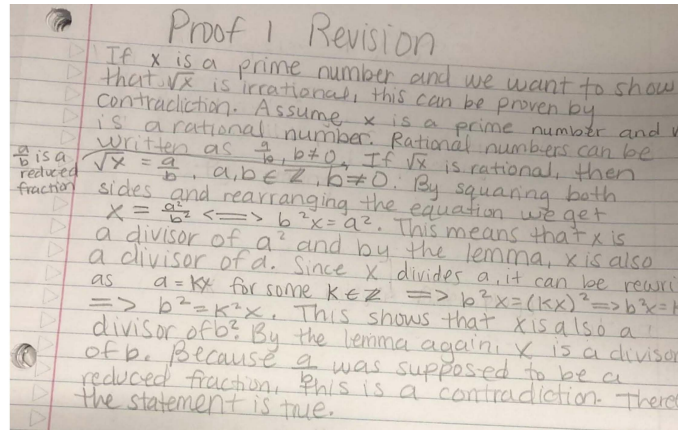 Proof 1 Revision
If x is a prime number and we want to show
that √x is irrational, this can be proven by
contradiction. Assume x is a prime number and
is a rational number. Rational numbers can be
written as a/b, b≠0. If √x is rational, then
a/b is a
reduced
fraction
√x = a/b, a,b ∈ Z, b≠0. By squaring both
sides and rearranging the equation we get
x = a²/b² <=> b²x = a². This means that x is
a divisor of a² and by the lemma, x is also
a divisor of a. Since x divides a, it can be rewri
as a = kx for some k ∈ Z => b²x = (kx)² => b²x =
=> b² = k²x. This shows that x is also a
divisor of b². By the lemma again, x is a divisor
of b. Because a/b was supposed to be a
reduced fraction, this is a contradiction. There
the statement is true.